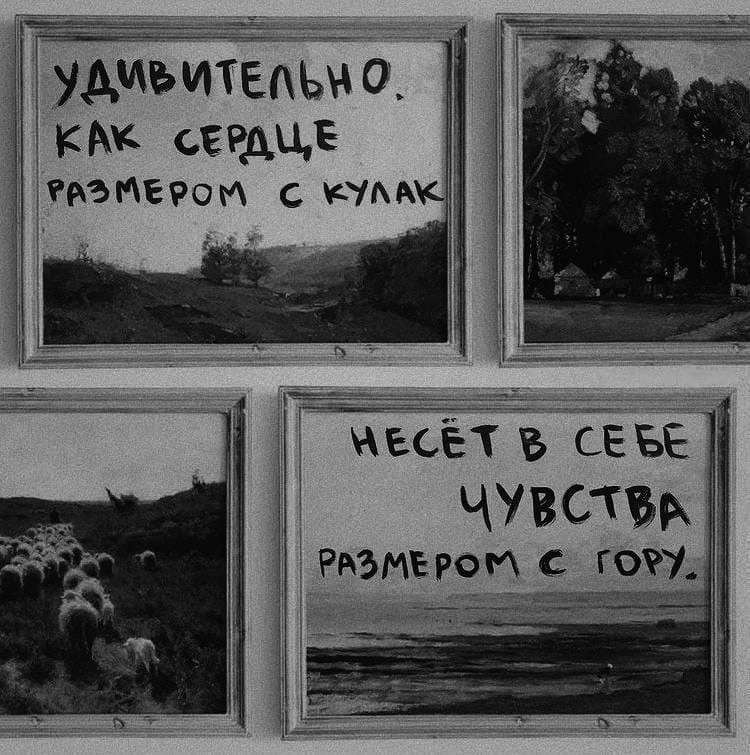 УДИВИТЕЛЬНО.
КАК СЕРДЦЕ
РАЗМЕРОМ С КУЛАК
НЕСЁТ В СЕБЕ
ЧУВСТВА
РАЗМЕРОМ С ГОРУ.